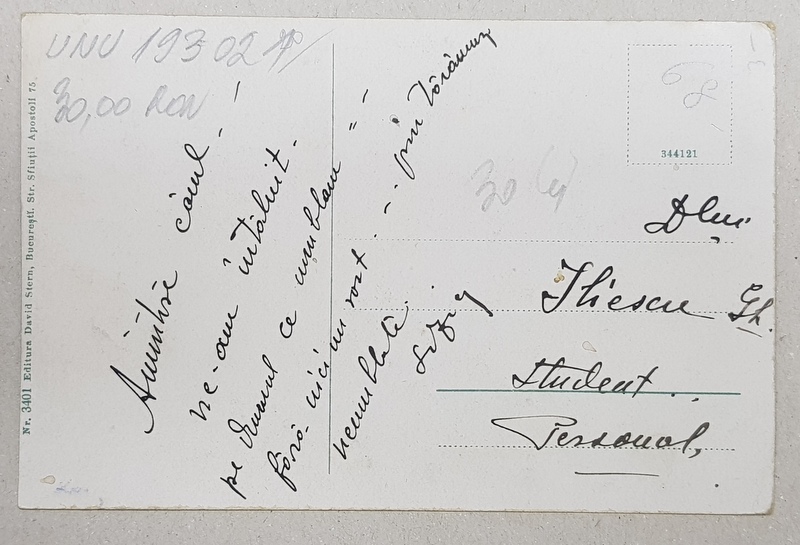 UNU 193 02
30,00 RON
Nr. 3401 Editura David Stern, București. Str. Sfinții Apostoli 75
344121
30 lei
Amintire când - - !
ne-am întâlnit -
pe drumul ce umblam = =
fără nici un rost . - - prin
neumblate.
Dlui
Iliescu Gh.
student
Personal,